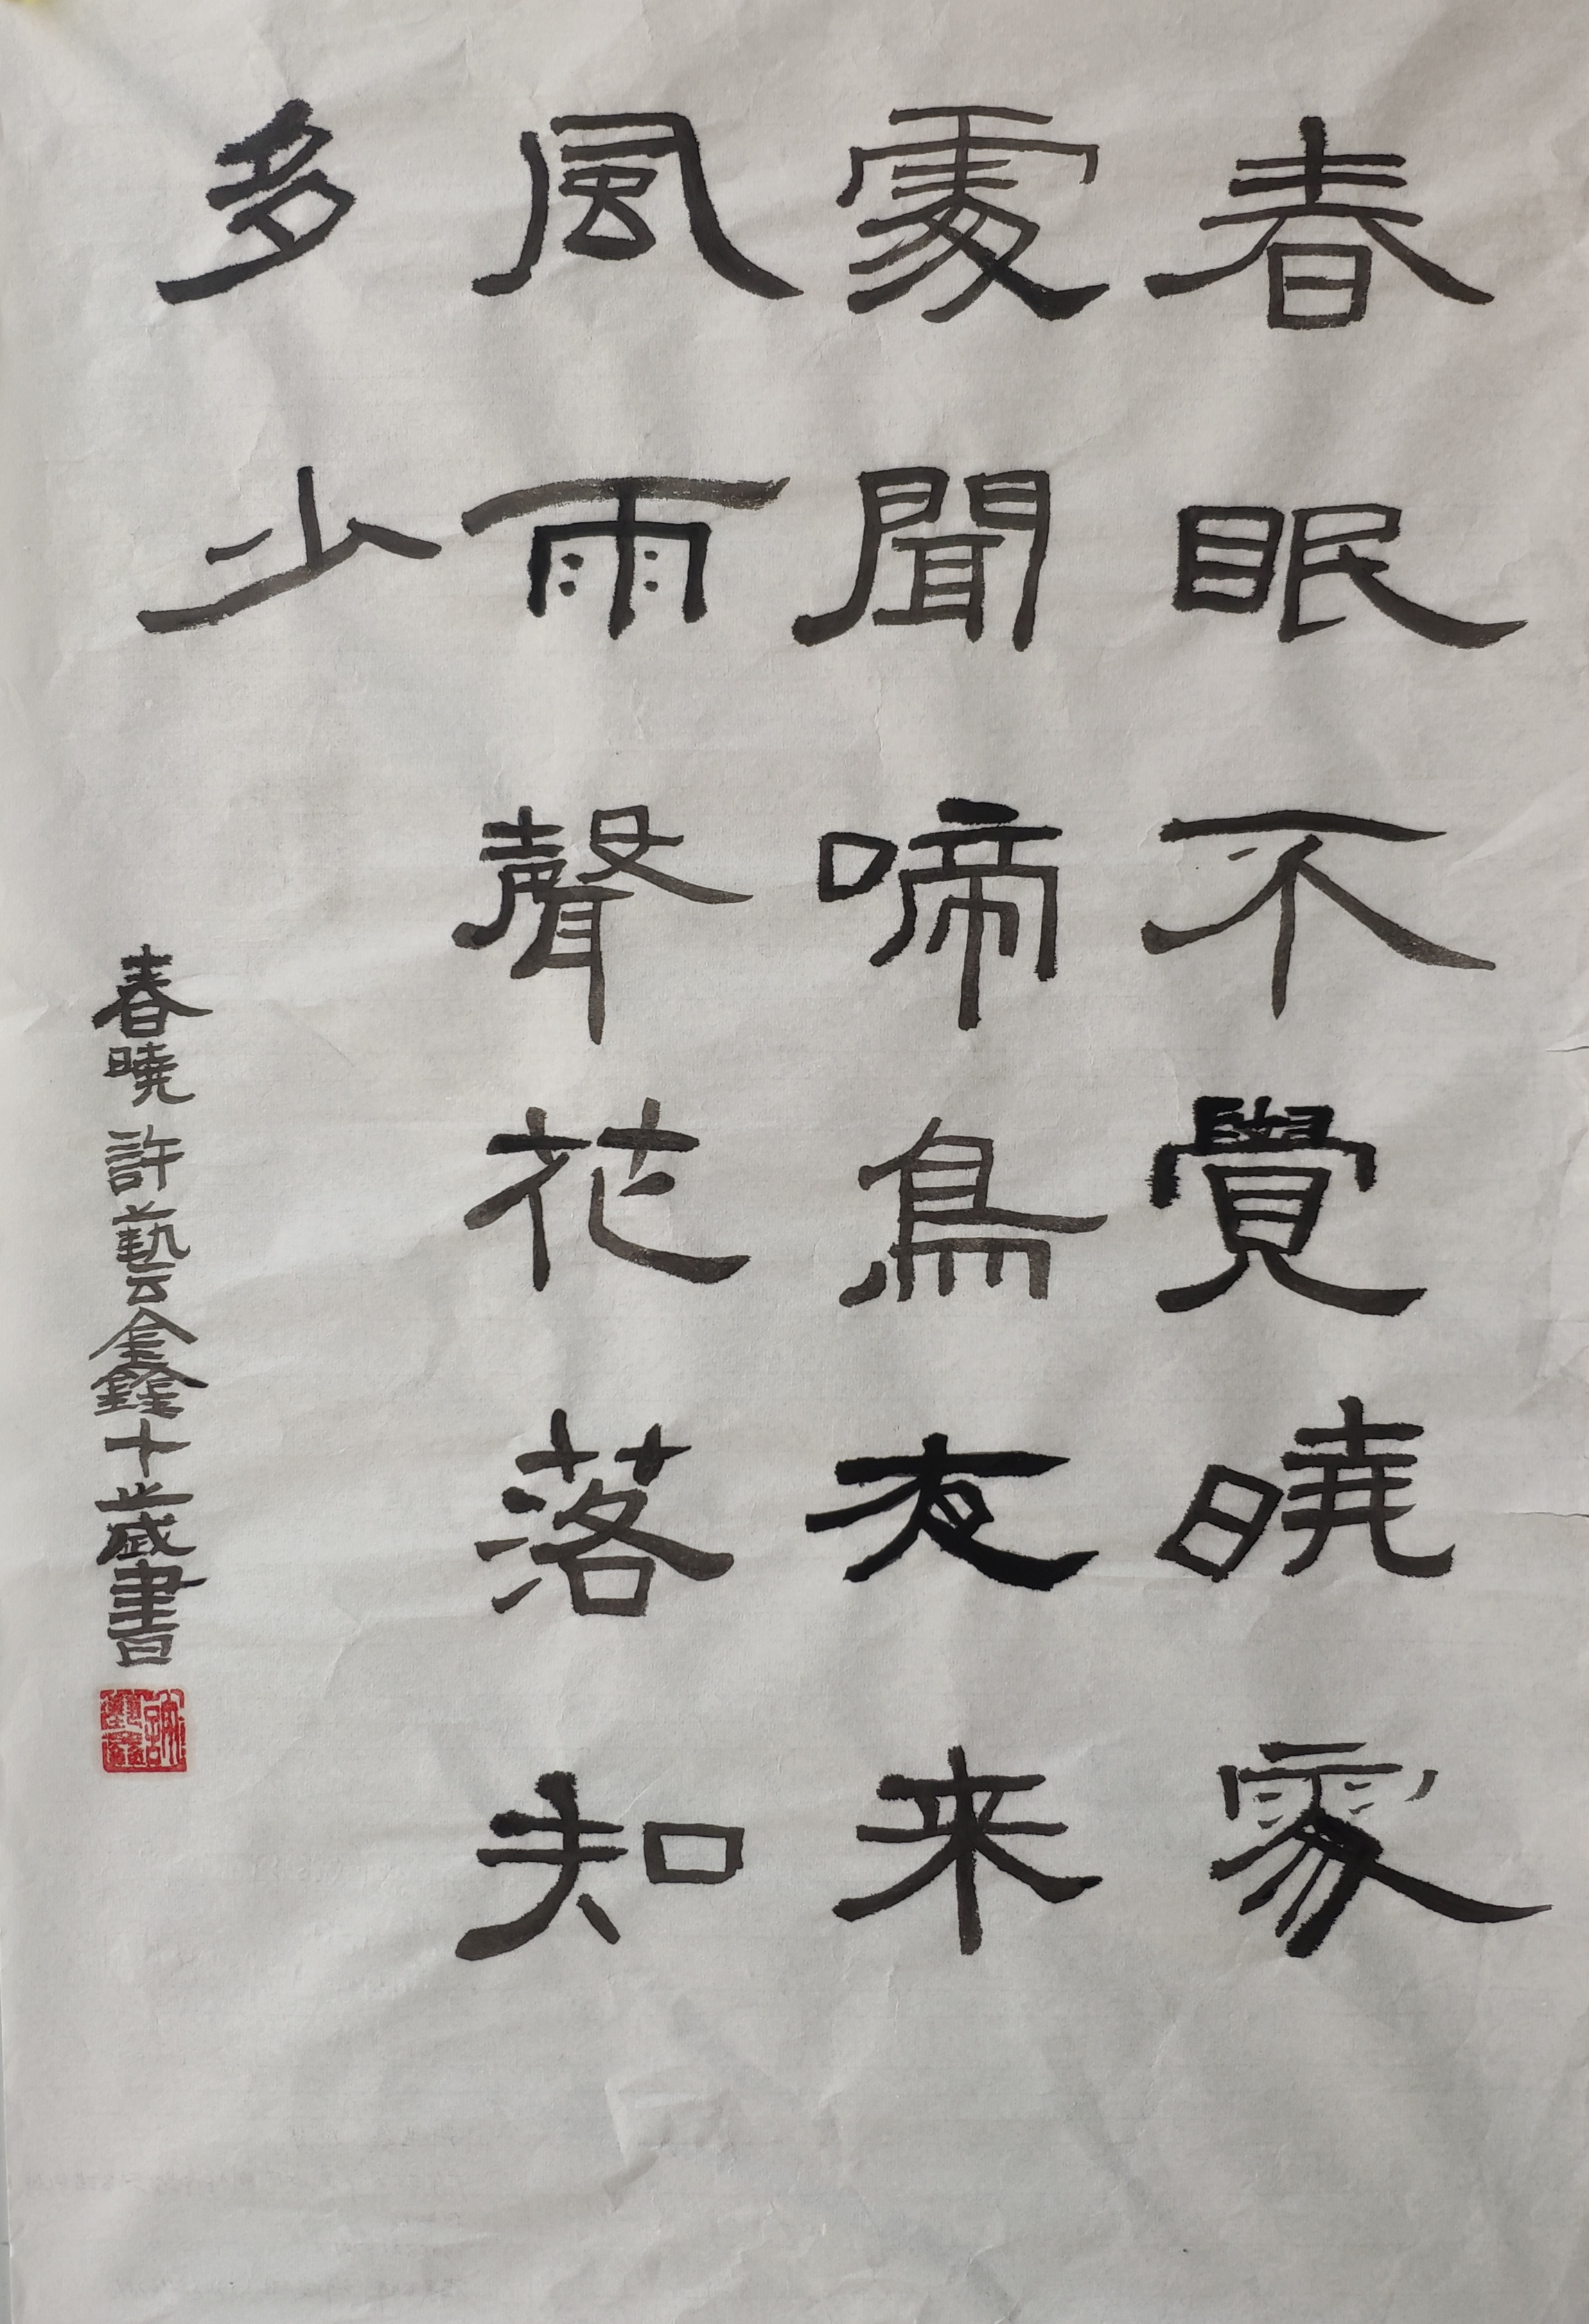 春眠不覺曉處
處聞啼鳥夜来
風雨聲花落知
多少
春曉 許藝鑫十歲書
許藝鑫